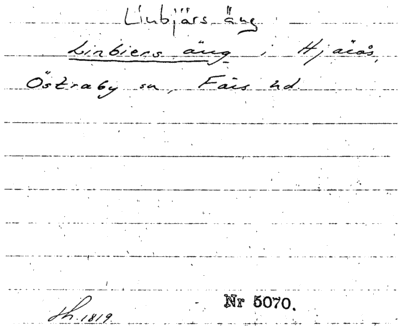 Linbjärs äng
Linbiers äng i Hjärås,
Östraby sn, Färs hd
Nr 5070.
Sk. 1819